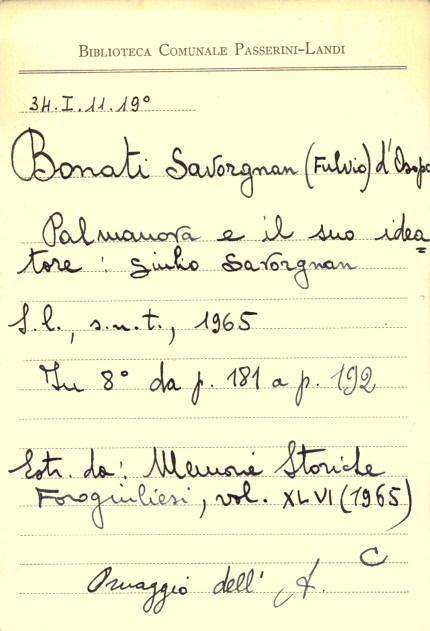 BIBLIOTECA COMUNALE PASSERINI-LANDI
34.I.11.19°
Bonati Savorgnan (Fulvio) d'Osopo
Palmanova e il suo idea=
tore : Giulio Savorgnan
S.l., s.n.t., 1965
In 8° da p. 181 a p. 192
Estr. da: Memorie Storiche
Forogiuliesi, vol. XLVI (1965)
C
Omaggio dell' A.